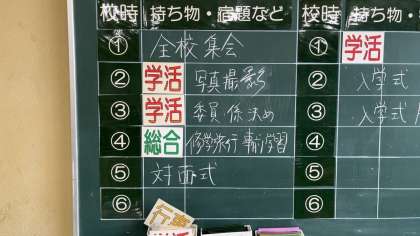 校時 持ち物・宿題など 校時 持ち物・
① 全校集会 ① 学活
② 学活 写真撮影 ② 入学式
③ 学活 委員係決め ③ 入学式
④ 総合 修学旅行事前学習 ④
⑤ 対面式 ⑤
⑥ ⑥
行事
学活